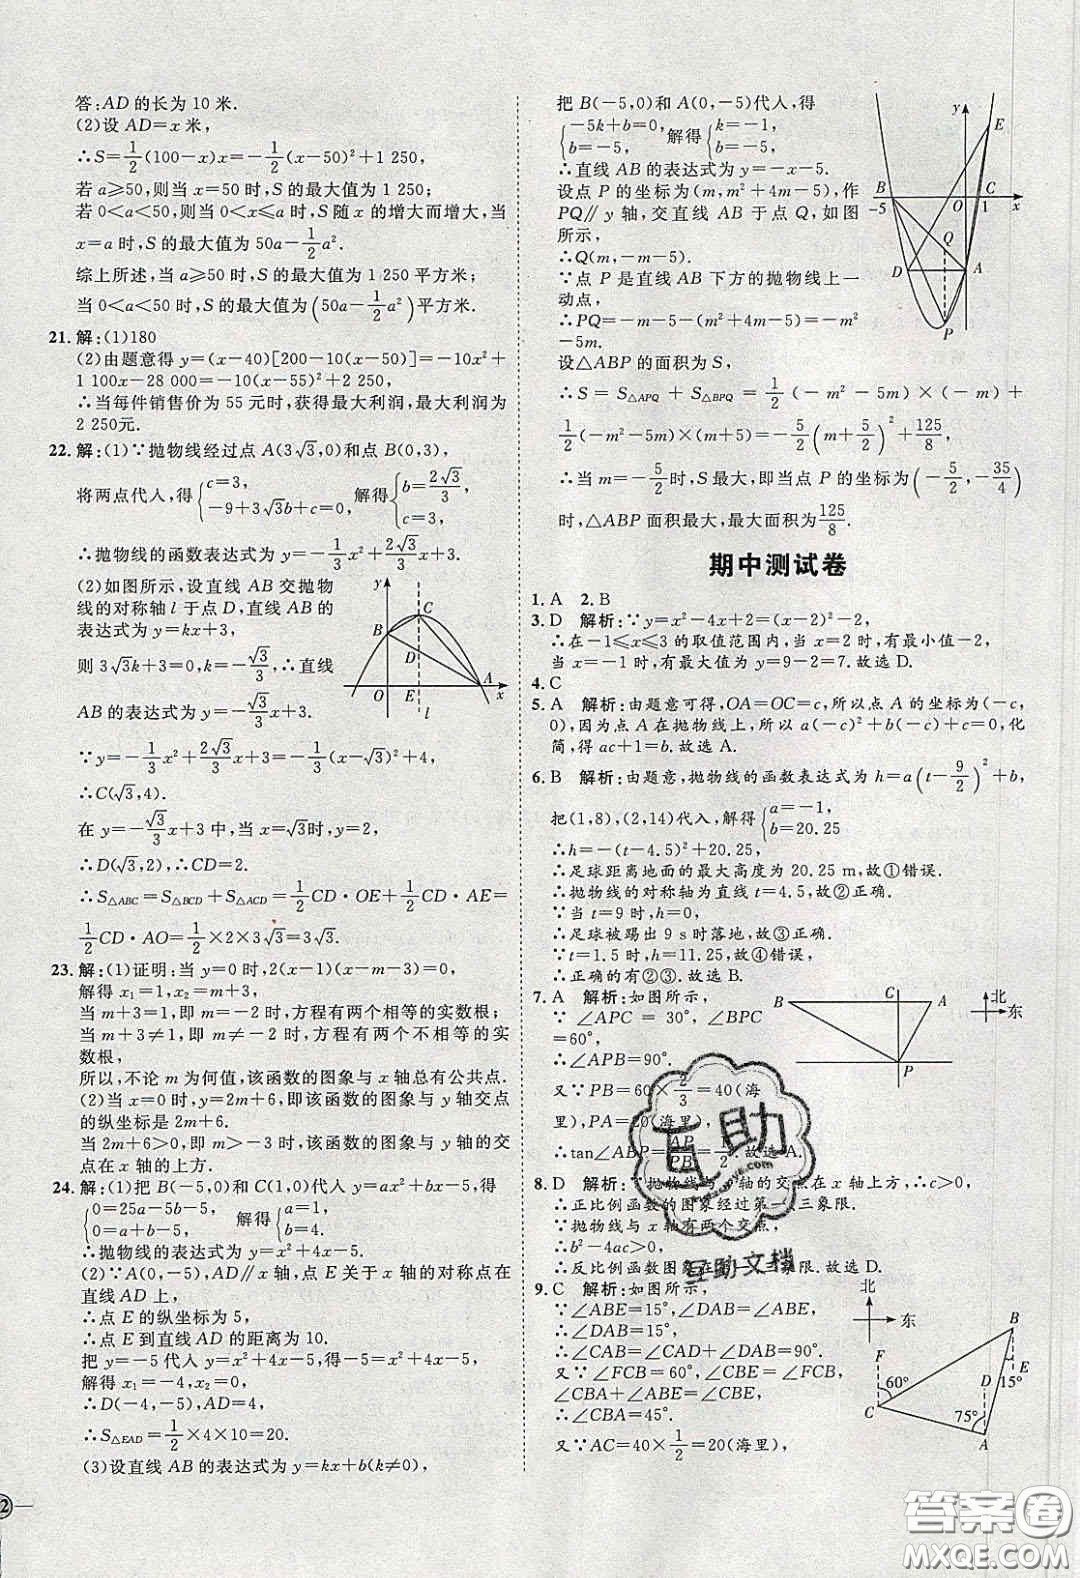 答:AD的长为10米.
(2)设AD=x米,
∴S=1/2(100-x)x=-1/2(x-50)²+1 250,
若a≥50,则当x=50时,S的最大值为1 250;
若0<a<50,则当0<x≤a时,S随x的增大而增大,当
x=a时,S的最大值为50a-1/2a².
综上所述,当a≥50时,S的最大值为1 250平方米;
当0<a<50时,S的最大值为(50a-1/2a²)平方米.
21.解:(1)180
(2)由题意得y=(x-40)[200-10(x-50)]=-10x²+
1 100x-28 000=-10(x-55)²+2 250,
∴当每件销售价为55元时,获得最大利润,最大利润为
2 250元.
22.解:(1)∵抛物线经过点A(3√3,0)和点B(0,3),
将两点代人,得{c=3, -9+3√3b+c=0, 解得{b=2√3/3, c=3,
∴抛物线的函数表达式为y=-1/3x²+2√3/3x+3.
(2)如图所示,设直线AB交抛物
线的对称轴l于点D,直线AB的
表达式为y=kx+3,
则3√3k+3=0,k=-√3/3,∴直线
AB的表达式为y=-√3/3x+3.
∵y=-1/3x²+2√3/3x+3=-1/3(x-√3)²+4,
∴C(√3,4).
在y=-√3/3x+3中,当x=√3时,y=2,
∴D(√3,2),∴CD=2.
∴S△ABC=S△BCD+S△ACD=1/2CD·OE+1/2CD·AE=
1/2CD·AO=1/2×2×3√3=3√3.
y
C
B
D
A
O
E
x
l
23.解:(1)证明:当y=0时,2(x-1)(x-m-3)=0,
解得x₁=1,x₂=m+3,
当m+3=1,即m=-2时,方程有两个相等的实数根;
当m+3≠1,即m≠-2时,方程有两个不相等的实
数根,
所以,不论m为何值,该函数的图象与x轴总有公共点.
(2)当x=0时,y=2m+6,即该函数的图象与y轴交点
的纵坐标是2m+6.
当2m+6>0,即m>-3时,该函数的图象与y轴的交
点在x轴的上方.
24.解:(1)把B(-5,0)和C(1,0)代人y=ax²+bx-5,得
{0=25a-5b-5, 0=a+b-5, 解得{a=1, b=4.
∴抛物线的表达式为y=x²+4x-5.
(2)∵A(0,-5),AD∥x轴,点E关于x轴的对称点在
直线AD上,
∴点E的纵坐标为5,
∴点E到直线AD的距离为10.
把y=-5代人y=x²+4x-5,得-5=x²+4x-5,
解得x₁=-4,x₂=0.
∴D(-4,-5),∴AD=4,
∴S△EAD=1/2×4×10=20.
(3)设直线AB的表达式为y=kx+b(k≠0),
把B(-5,0)和A(0,-5)代人,得
{-5k+b=0, b=-5, 解得{k=-1, b=-5.
∴直线AB的表达式为y=-x-5.
设点P的坐标为(m,m²+4m-5),作
PQ∥y轴,交直线AB于点Q,如图
所示,
∴Q(m,-m-5).
∵点P是直线AB下方的抛物线上一
动点,
∴PQ=-m-5-(m²+4m-5)=-m²
-5m.
设△ABP的面积为S,
∴S=S△APQ+S△BPQ=1/2(-m²-5m)×(-m)+
1/2(-m²-5m)×(m+5)=-5/2(m+5/2)²+125/8,
∴当m=-5/2时,S最大,即当点P的坐标为(-5/2,-35/4)
时,△ABP面积最大,最大面积为125/8.
y
E
B
O
C
-5
1
x
Q
D
A
P
期中测试卷
1. A 2. B
3. D 解析:∵y=x²-4x+2=(x-2)²-2,
∴在-1≤x≤3的取值范围内,当x=2时,有最小值-2,
当x=-1时,有最大值为y=9-2=7.故选D.
4. C
5. A 解析:由题意可得,OA=OC=c,所以点A的坐标为(-c,
0),因为点A在抛物线上,所以a(-c)²+b(-c)+c=0,化
简,得ac+1=b.故选A.
6. B 解析:由题意,抛物线的函数表达式为h=a(t-9/2)²+b,
把(1,8),(2,14)代入,解得{a=-1, b=20.25
∴h=-(t-4.5)²+20.25,
∴足球距离地面的最大高度为20.25 m,故①错误.
∴抛物线的对称轴为直线t=4.5,故②正确.
∵当t=9时,h=0,
∴足球被踢出9 s时落地,故③正确.
∵t=1.5时,h=11.25,故④错误.
∴正确的有②③.故选B.
7. A 解析:如图所示,
∵∠APC=30°,∠BPC
=60°,
∴∠APB=90°.
又∵PB=60×2/3=40(海
里),PA=20(海里),
∴tan∠ABP=AP/PB=1/2.故选A.
B
C
A
P
北
东
8. D 解析:∵抛物线与y轴的交点在x轴上方,∴c>0,
∴正比例函数的图象经过第一、三象限.
∵抛物线与x轴有两个交点,
∴b²-4ac>0,
∴反比例函数图象在第一、三象限.故选D.
9. C 解析:如图所示,
∵∠ABE=15°,∠DAB=∠ABE,
∴∠DAB=15°,
∴∠CAB=∠CAD+∠DAB=90°.
又∵∠FCB=60°,∠CBE=∠FCB,
∠CBA+∠ABE=∠CBE,
∴∠CBA=45°.
又∵AC=40×1/2=20(海里),
北
东
B
F
60°
D
E
15°
C
75°
A
互助
互助文档
2
答案圈
MXQE.COM